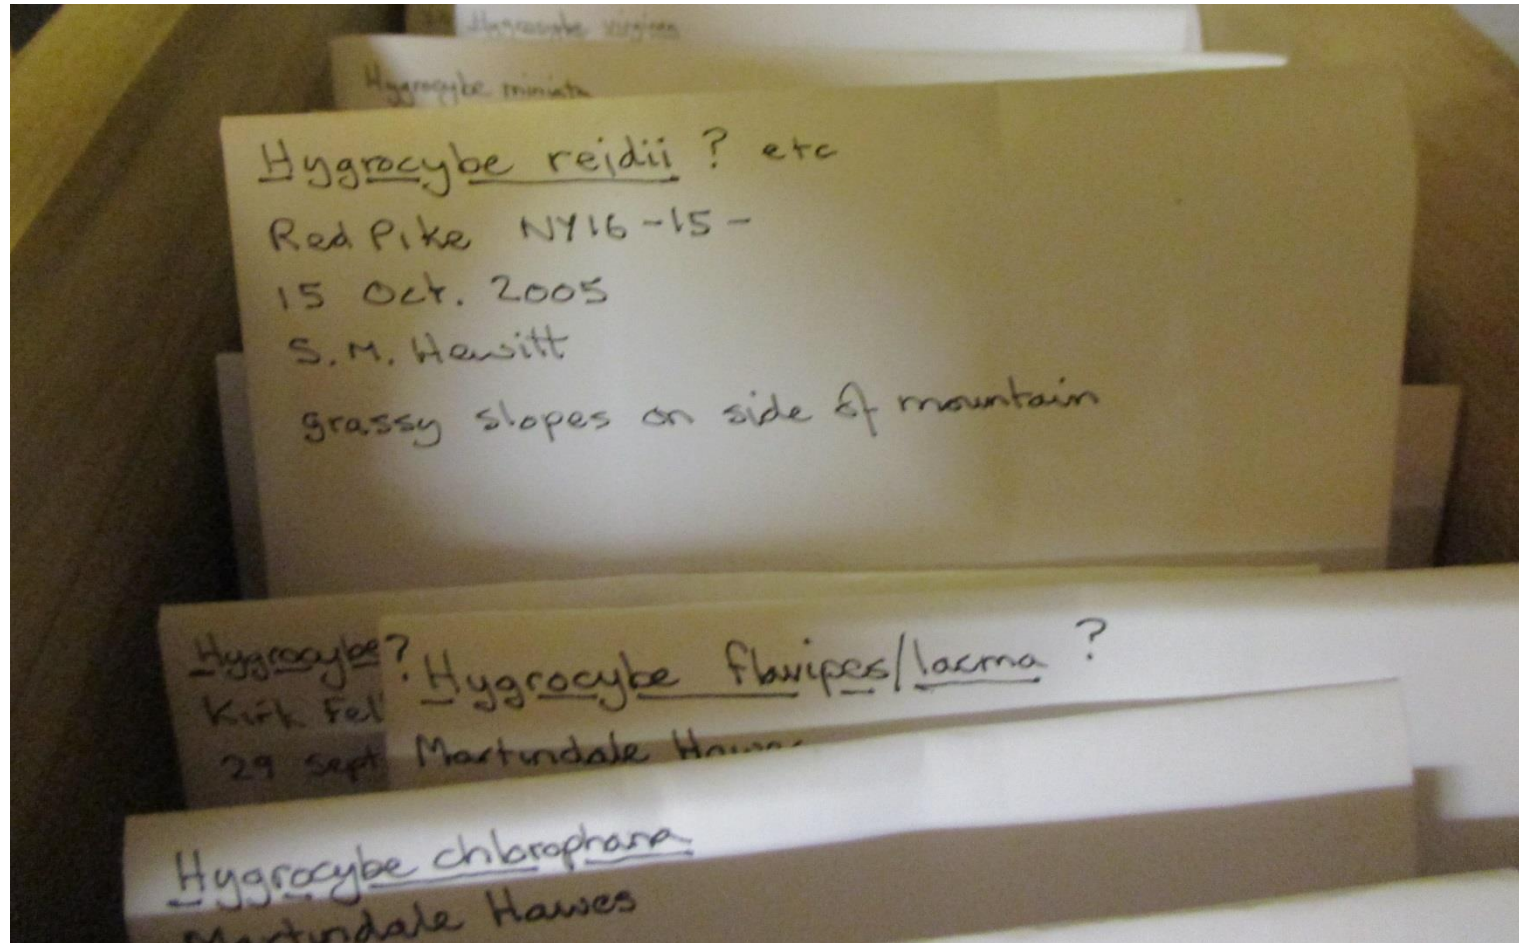 Hygrocybe virginea
Hygrocybe miniata
Hygrocybe reidii ? etc
Red Pike NY16-15-
15 Oct. 2005
S.M. Hewitt
grassy slopes on side of mountain
Hygrocybe?
Kirk Fel
29 Sept
Hygrocybe flavipes/lacma ?
Martindale Hawes
Hygrocybe chlorophana
Martindale Hawes